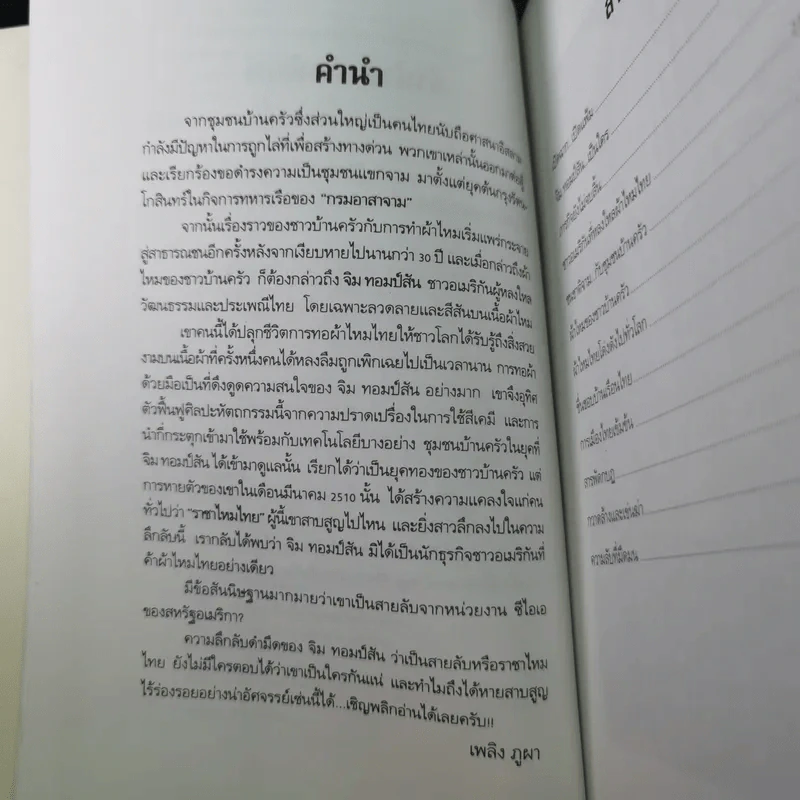 คำนำ
จากชุมชนบ้านครัวซึ่งส่วนใหญ่เป็นคนไทยนับถือศาสนาอิสลาม
กำลังมีปัญหาในการถูกไล่ที่เพื่อสร้างทางด่วน พวกเขาเหล่านั้นออกมาต่อสู้
และเรียกร้องขอดำรงความเป็นชุมชนแขกจาม มาตั้งแต่ยุคต้นกรุงรัตน
โกสินทร์ในกิจการทหารเรือของ "กรมอาสาจาม"
จากนั้นเรื่องราวของชาวบ้านครัวกับการทำผ้าไหมเริ่มแพร่กระจาย
สู่สาธารณชนอีกครั้งหลังจากเงียบหายไปนานกว่า 30 ปี และเมื่อกล่าวถึงผ้า
ไหมของชาวบ้านครัว ก็ต้องกล่าวถึง จิม ทอมป์สัน ชาวอเมริกันผู้หลงใหล
วัฒนธรรมและประเพณีไทย โดยเฉพาะลวดลายและสีสันบนเนื้อผ้าไหม
เขาคนนี้ได้ปลุกชีวิตการทอผ้าไหมไทยให้ชาวโลกได้รับรู้ถึงสิ่งสวย
งามบนเนื้อผ้าที่ครั้งหนึ่งคนได้หลงลืมถูกเพิกเฉยไปเป็นเวลานาน การทอผ้า
ด้วยมือเป็นที่ดึงดูดความสนใจของ จิม ทอมป์สัน อย่างมาก เขาจึงอุทิศ
ตัวฟื้นฟูศิลปะหัตถกรรมนี้จากความปราดเปรื่องในการใช้สีเคมี และการ
นำกี่กระตุกเข้ามาใช้พร้อมกับเทคโนโลยีบางอย่าง ชุมชนบ้านครัวในยุคที่
จิม ทอมป์สัน ได้เข้ามาดูแลนั้น เรียกได้ว่าเป็นยุคทองของชาวบ้านครัว แต่
การหายตัวของเขาในเดือนมีนาคม 2510 นั้น ได้สร้างความแคลงใจแก่คน
ทั่วไปว่า "ราชาไหมไทย" ผู้นี้เขาสาบสูญไปไหน และยิ่งสาวลึกลงไปในความ
ลึกลับนี้ เรากลับได้พบว่า จิม ทอมป์สัน มิได้เป็นนักธุรกิจชาวอเมริกันที่
ค้าผ้าไหมไทยอย่างเดียว
มีข้อสันนิษฐานมากมายว่าเขาเป็นสายลับจากหน่วยงาน ซีไอเอ
ของสหรัฐอเมริกา?
ความลึกลับดำมืดของ จิม ทอมป์สัน ว่าเป็นสายลับหรือราชาไหม
ไทย ยังไม่มีใครตอบได้ว่าเขาเป็นใครกันแน่ และทำไมถึงได้หายสาบสูญ
ไร้ร่องรอยอย่างน่าอัศจรรย์เช่นนี้ได้...เชิญพลิกอ่านได้เลยครับ!!
เพลิง ภูผา
จิม ทอมป์สัน เป็นใคร
ภารกิจยังไม่จบสิ้น
ชาวอเมริกันที่หลงใหลผ้าไหมไทย
ชนชาติจาม กับชุมชนบ้านครัว
ผ้าไหมของชาวบ้านครัว
ผ้าไหมไทยโด่งดังไปทั่วโลก
ชื่นชอบบ้านเรือนไทย
การเมืองไทยเข้มข้น
กวาดล้างและเข่นฆ่า
ความลับที่มืดมน